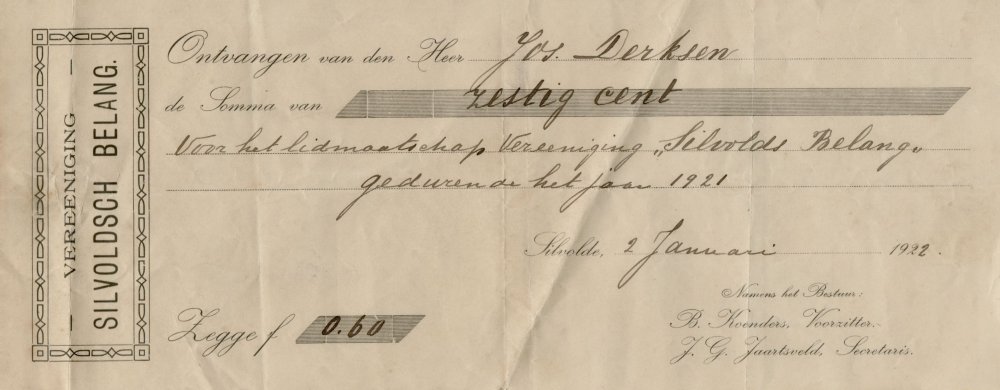 — VEREENIGING —
SILVOLDSCH BELANG.
Ontvangen van den Heer Jos. Derksen
de Somma van zestig cent
Voor het lidmaatschap Vereeniging „Silvolds Belang"
gedurende het jaar 1921
Silvolde, 2 Januari 1922.
Namens het Bestuur:
B. Koenders, Voorzitter.
J. G. Jaartsveld, Secretaris.
Zegge f 0.60